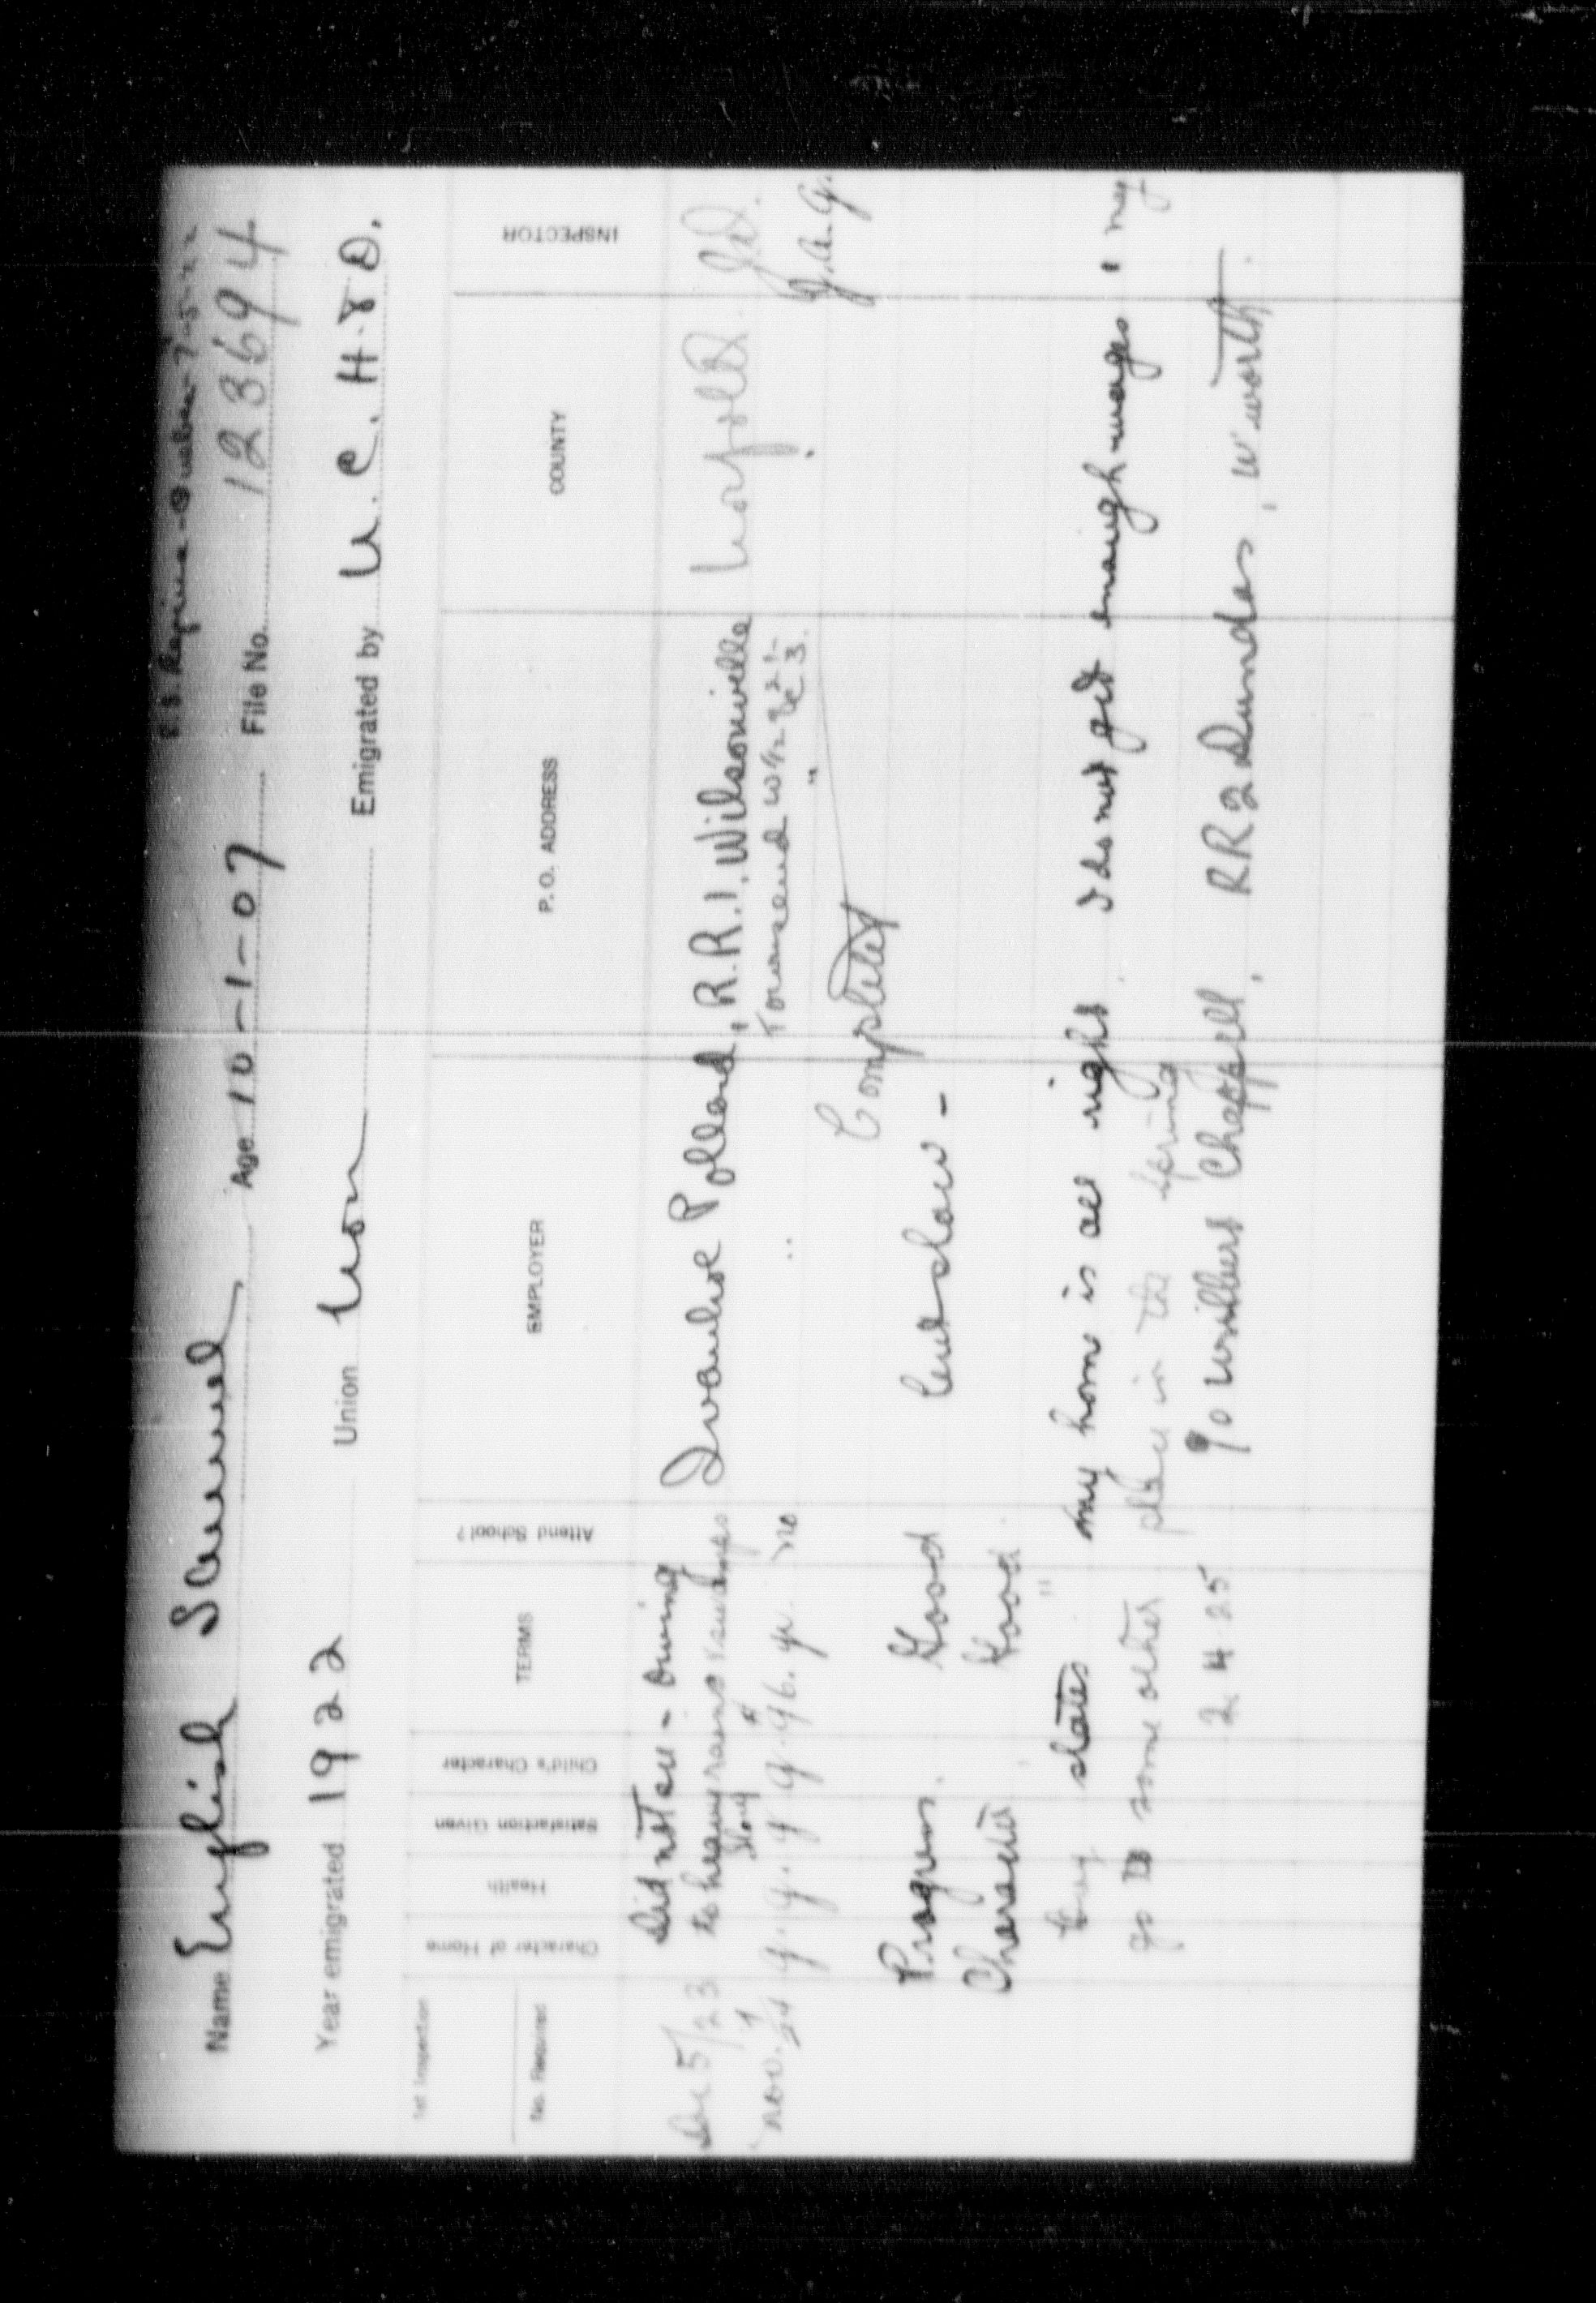 S.S. Regina - Quebec 7-5-22
Name English Samuel Age 10-1-07 File No. 123694
Year emigrated 1922 Union Non Emigrated by U.C.H.&D.
1st Inspection
No. Required
Character of Home Health Satisfaction Given Child's Character TERMS Attend School? EMPLOYER P.O. ADDRESS COUNTY INSPECTOR
Did not see - owing
Dec 5/23 to heavy rains & Ivanhoe Pollard, R.R.1, Wilsonville Norfolk
Story Townsend
Nov. 24 g. g. g. g. 96. yr. no " " J.A.G.
Completed
Progress. Good
Character Good
Boy states " my home is all right. I do not get enough wages, I may
go to some other place in the spring
2 4 25 c/o Wilbert Cheppell, RR2 Dundas, Wworth.